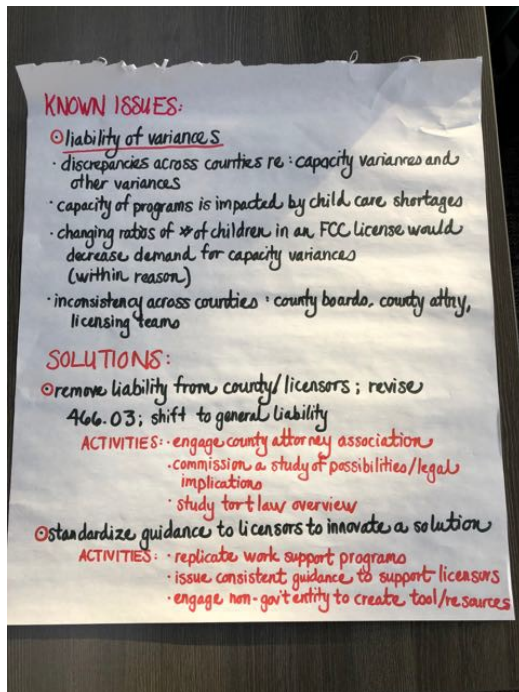 KNOWN ISSUES:
⊙ liability of variances
· discrepancies across counties re: capacity variances and
other variances
· capacity of programs is impacted by child care shortages
· changing ratios of # of children in an FCC license would
decrease demand for capacity variances
(within reason)
· inconsistency across counties: county boards, county attny,
licensing teams
SOLUTIONS:
⊙ remove liability from county/licensors; revise
466.03; shift to general liability
ACTIVITIES: · engage county attorney association
· commission a study of possibilities/legal
implications
· study tort law overview
⊙ standardize guidance to licensors to innovate a solution
ACTIVITIES: · replicate work support programs
· issue consistent guidance to support licensors
· engage non-gov't entity to create tool/resources